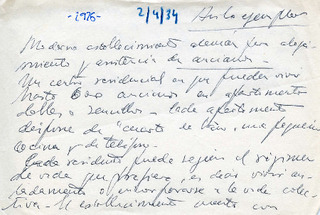 -2926- 2/4/34 Aula ejemplar
Moderno establecimiento alemán para aloja-
miento y asistencia de ancianos
Un centro residencial en que pueden vivir
hasta ancianos en apartamentos
dobles o sencillos - Cada apartamento
dispone de cuarto de baño, una pequeña
cocina y de teléfono.
Cada residente puede seguir el régimen
de vida que prefiera, es decir vivir ais-
ladamente o incorporarse a la vida colec-
tiva - El establecimiento cuenta con